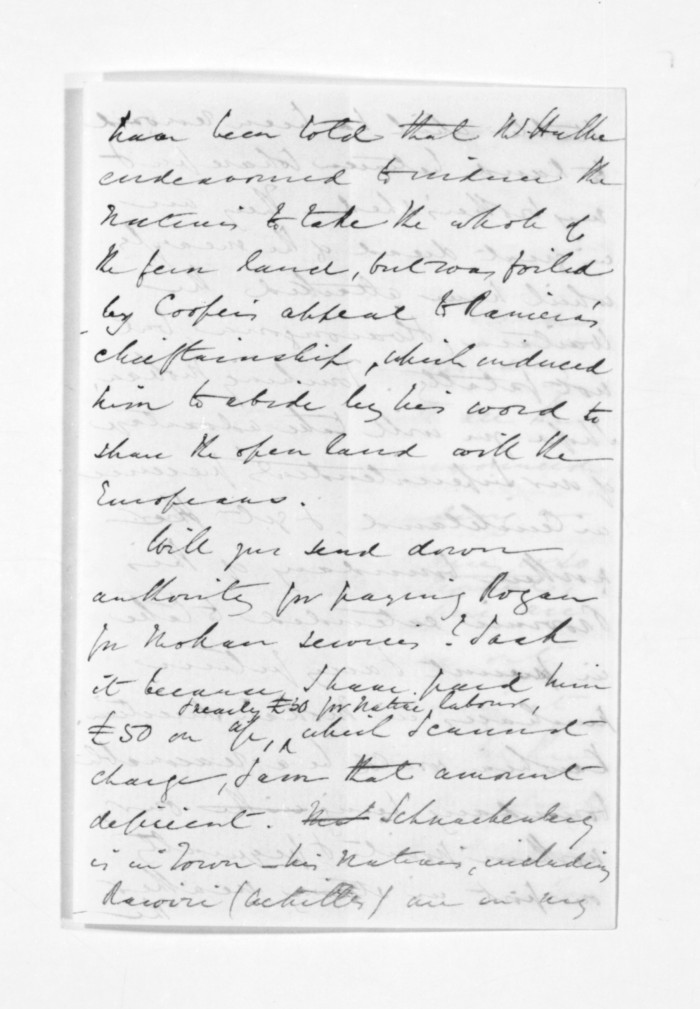 have been told that Mr Hulke
endeavoured to induce the
Natives to take the whole of
the fern land, but was foiled
by Cooper's appeal to
chieftainship, which induced
him to abide by his word to
share the open land with the
Europeans.
Will you send down
authority for paying Rogan
for Mokau services? I ask
it because I have paid him
& nearly £50 for Native labour,
£50 on a/c, which I cannot
charge, I am that amount
deficient. Schnackenberg
is in Town - his Natives, including
(Achilles) are in my